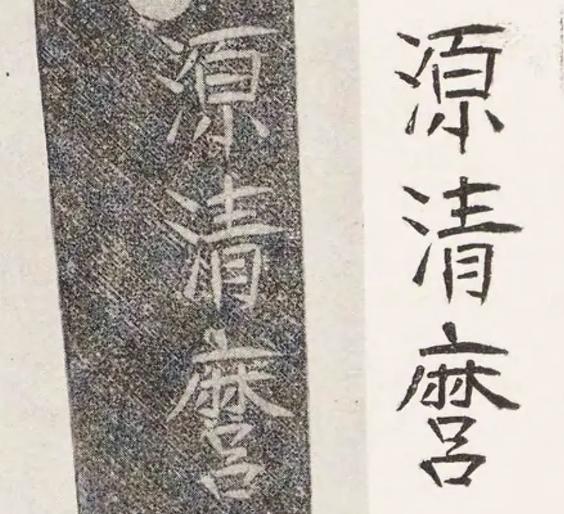 源清麿
源清麿